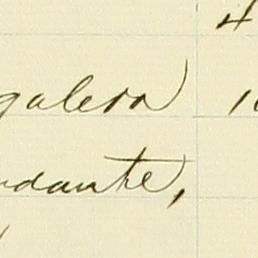 4
galera 10
ndante,